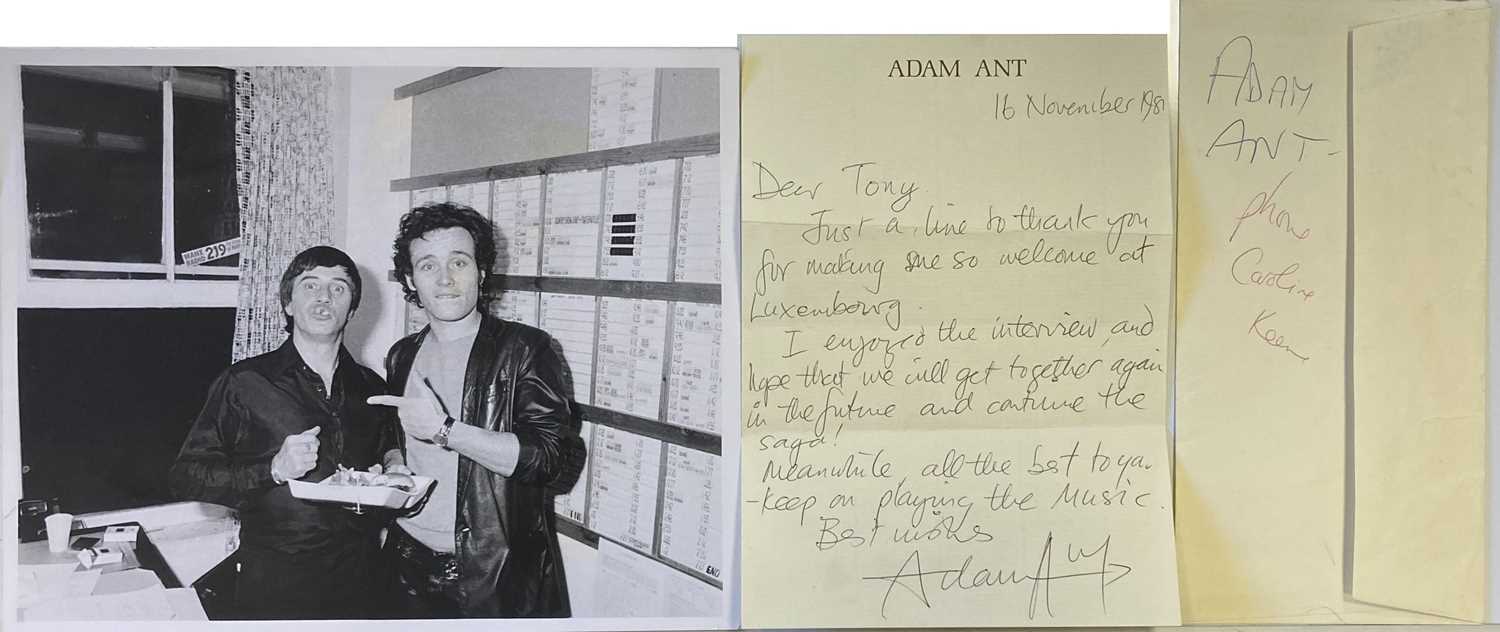 219
END
ADAM ANT
16 November 1981
Dear Tony.
Just a line to thank you
for making me so welcome at
Luxembourg.
I enjoyed the interview, and
hope that we will get together again
in the future and continue the
saga!
Meanwhile, all the best to ya.
- Keep on playing the Music.
Best wishes
Adam Ant
ADAM
ANT-
phone
Caroline
Keene